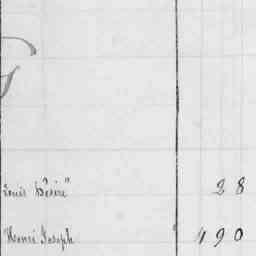 G
Louis Désiré 28
Henri Joseph 490